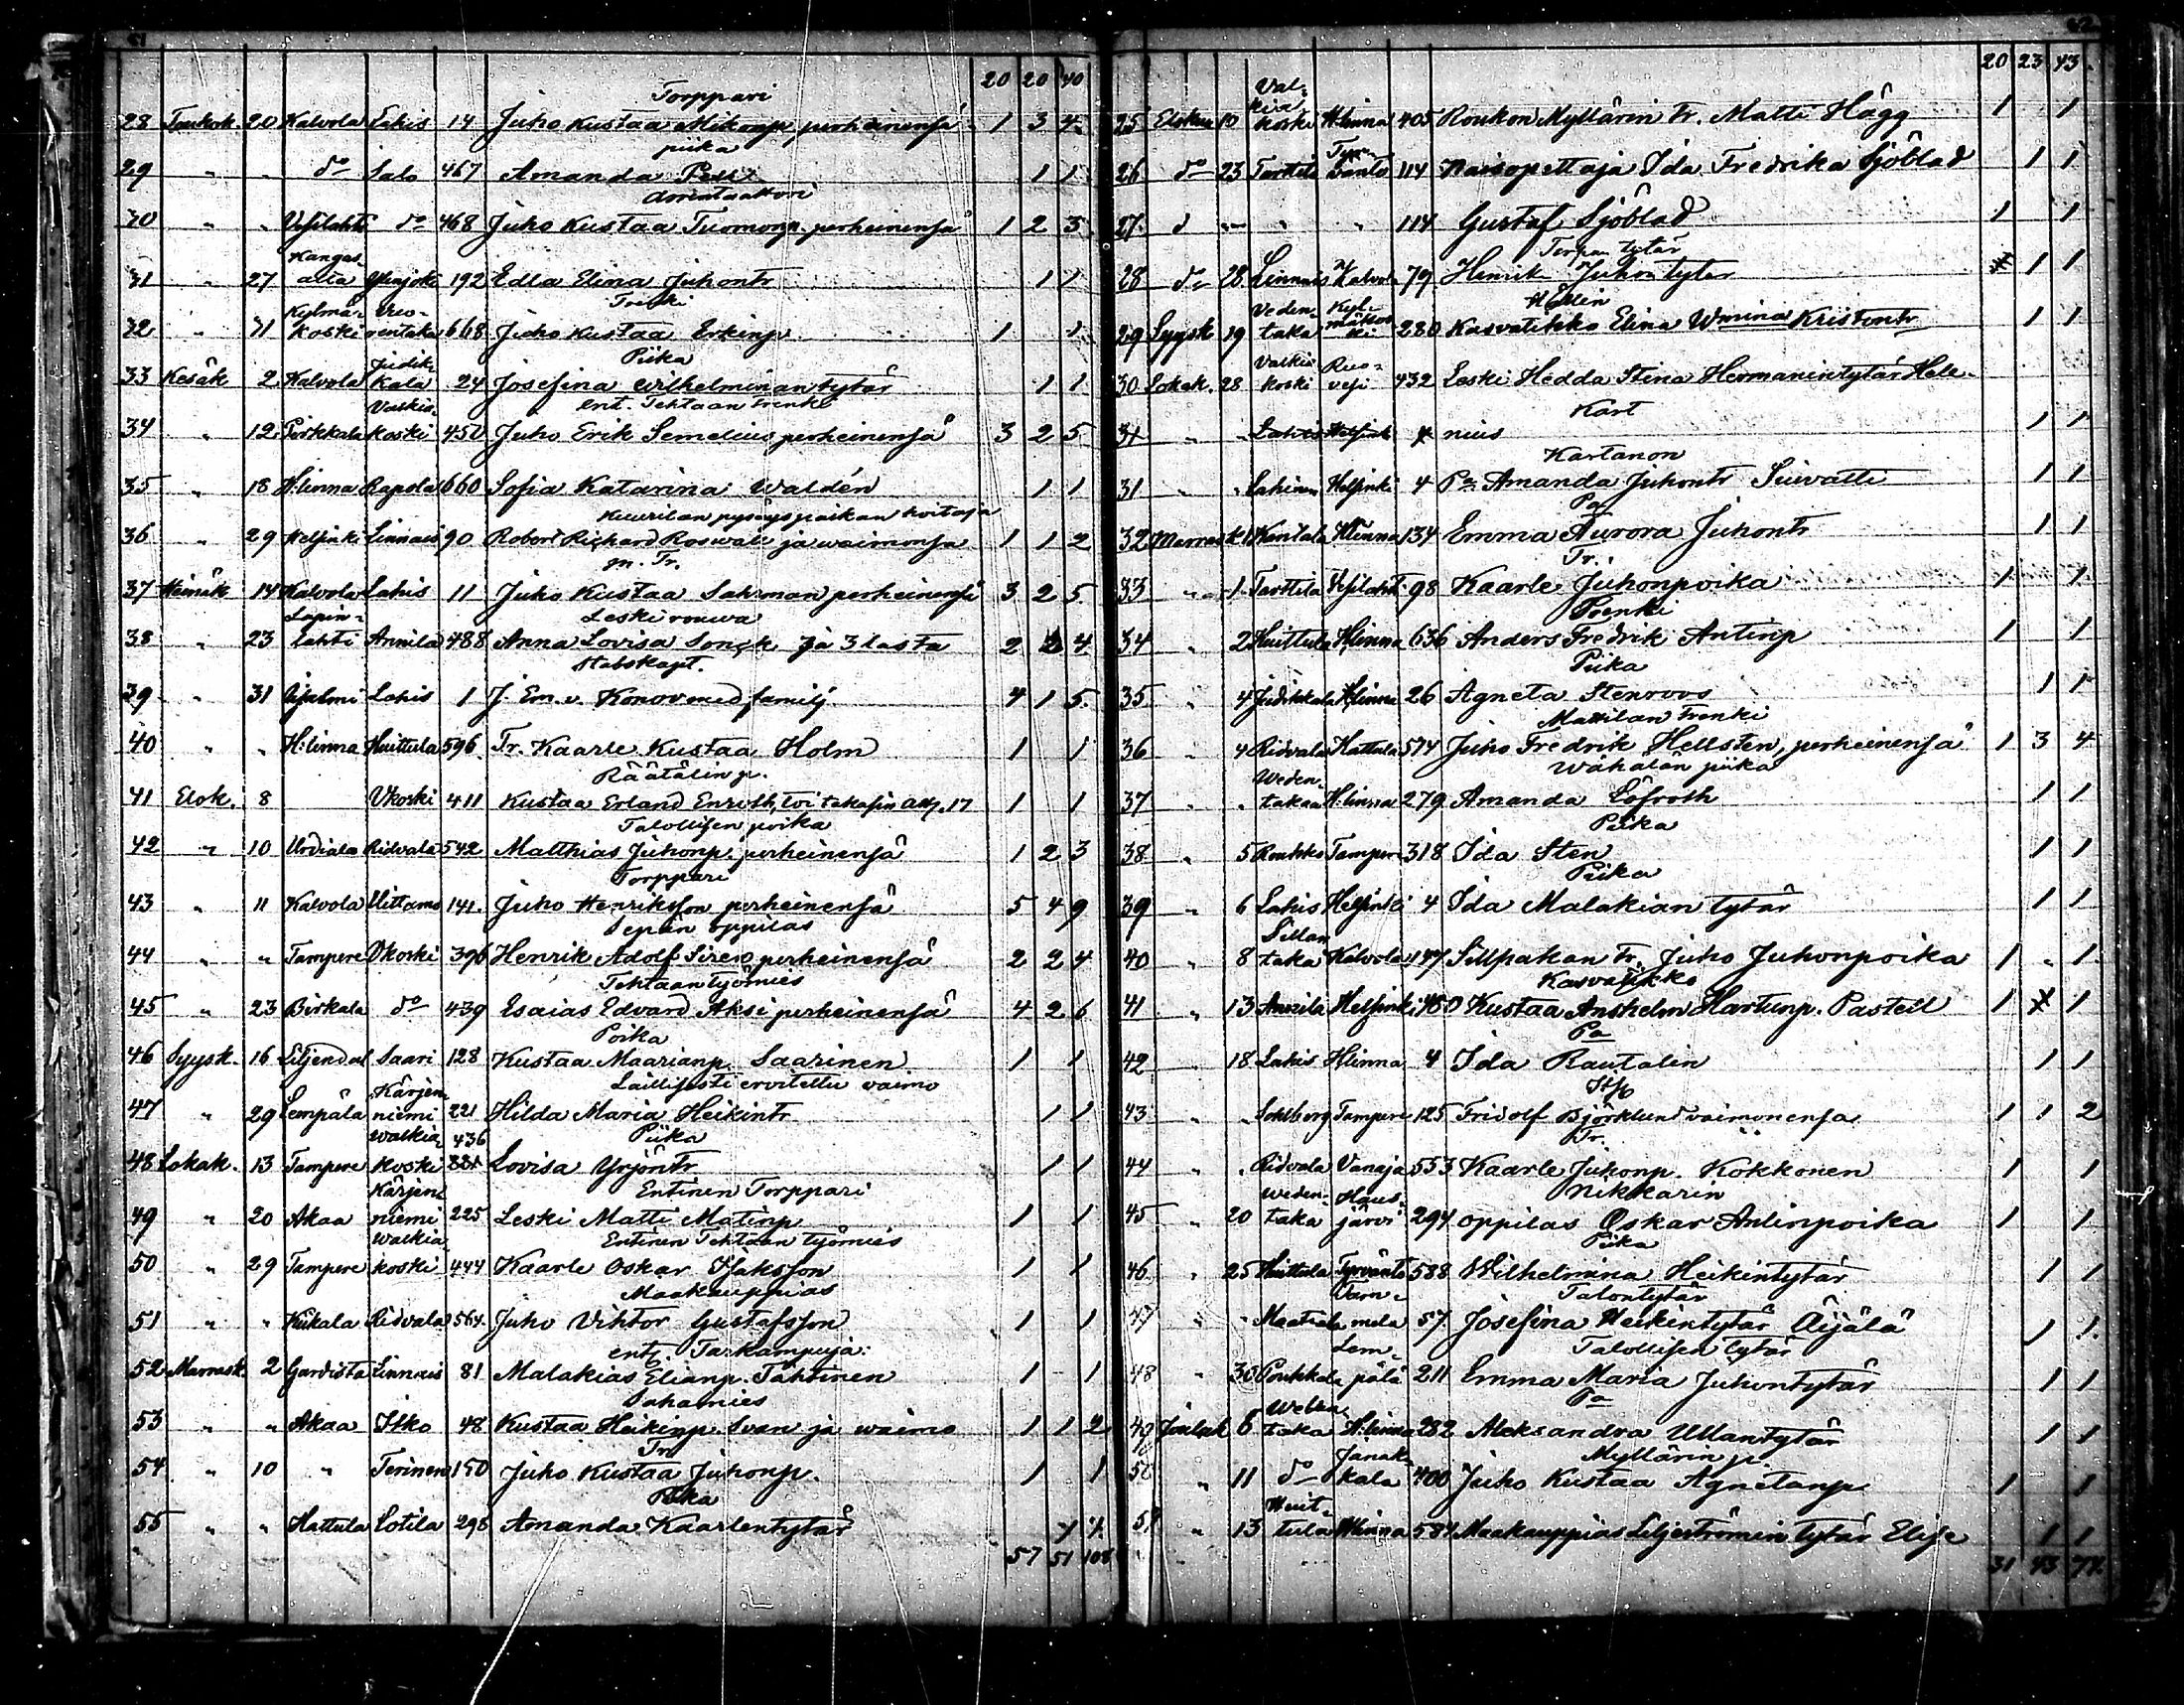 61
20 20 40
Torppari
28 Toukok. 20 Kalvola Lahis 14 Juho Kustaa Mikonp. perheinensä 1 3 4
piika
29 " " do Salo 467 Amanda 1 1
30 " " Vesilahti do 468 Juho Kustaa Tuomonp. perheinensä 1 2 3
Kangas-
31 " 27 ala 192 Edla Elina Juhontr 1 1
Trenki
Kylmä-
32 " 31 koski 668 Juho Kustaa Erkinp 1 1
Piika
Judik-
33 Kesäk 2 Kalvola kala 24 Josefina Wilhelminantytär 1 1
ent. Tehtaan trenki
Valkia-
34 " 12 Pirkkala koski 450 Juho Erik Semelius perheinensä 3 2 5
35 " 18 H:linna Rapola 660 Sofia Katarina Waldén 1 1
Kuurilan pysäyspaikan hoitaja
36 " 29 Helsinki Linnais 90 Robert Richard Roswall ja waimonsa 1 1 2
m. Tr.
37 Heinäk 14 Kalvola Lahis 11 Juho Kustaa Sahrman perheinensä 3 2 5
Lapin- Leski rouwa
38 " 23 lahti Annila 488 Anna Lovisa Sonck ja 3 lasta 2 2 4
Stabskapt.
39 " 31 Lahis 1 J. Em. v. Konow med familj 4 1 5
40 " " H:linna Huittula 596 Tr. Kaarle Kustaa Holm 1 1
Räätälin p.
41 Elok. 8 Vkoski 411 Kustaa Erland Enroth, toi takasin 17 1 1
Talollisen poika
42 " 10 Urdiala Ridvala 542 Matthias Juhonp. perheinensä 1 2 3
Torppari
43 " 11 Kalvola Uittamo 141 Juho Henriksson perheinensä 5 4 9
Sepän oppilas
44 " " Tampere Vkoski 396 Henrik Adolf Siren perheinensä 2 2 4
Tehtaan työmies
45 " 23 Birkala do 439 Esaias Edvard Aksi perheinensä 4 2 6
Poika
46 Syysk. 16 Liljendal Saari 128 Kustaa Maarianp. Saarinen 1 1
Laillisesti eroitettu vaimo
Kärjen-
47 " 29 Lempäla niemi 221 Hilda Maria Heikintr 1 1
Walkia- 436 Piika
48 Lokak. 13 Tampere koski 221 Lovisa Yrjöntr 1 1
Kärjen- Entinen Torppari
49 " 20 Akaa niemi 225 Leski Matti Matinp 1 1
Walkia- Entinen Tehtaan työmies
50 " 29 Tampere koski 444 Kaarle Oskar Isaksson 1 1
Maakauppias
51 " " Kiikala Ridvala 564 Juho Viktor Gustafsson 1 1
52 Marrask. 2 Gardista Linnais 81 Malakias Elianp. Tähtinen 1 - 1
Sahamies
53 " " Akaa Itko 48 Kustaa Heikinp. Svan ja waimo 1 1 2
Tr.
54 " 10 " Terinen 150 Juho Kustaa Juhonp. 1 1
Piika
55 " " Hattula Lotila 298 Amanda Kaarlentytär 1 1
57 51 108
62
20 23 43
Val-
kia
25 Elokuu 10 koski H:linna 405 Roukon Myllärin Tr. Matti Hägg 1 1
Tyr-
26 do 23 Tarttila väntö 114 Kaisopettaja Ida Fredrika Sjöblad 1 1
27 d " " " 114 Gustaf Sjöblad 1 1
Torpan tytär
28 do 28 Linnais Kalvola 79 Henrik Juhon tytär 1 1
Veden- Kyl- Hellin
29 Syysk 19 taka mäkoski 280 Kasvatikko Elina Wmina Kristontr 1 1
Valkia Ruo-
30 Lokak. 28 koski vesi 432 Leski Hedda Stina Hermanintytär Hele-
Kart
31 " " Lahis Helsinki 4 nius 1 1
Kartanon
31 " " Lahinen Helsinki 4 Pa Amanda Juhontr Siivatti 1 1
Pa
32 Marrask 1 Kantala H:linna 134 Emma Aurora Juhontr 1 1
Tr.
33 " 1 Tarttila Vesilahti 98 Kaarle Juhonpoika 1 1
Renki
34 " 2 Huittula H:linna 636 Anders Fredrik Antinp 1 1
Piika
35 " 4 Judikkala H:linna 26 Agneta Stenroos 1 1
Mattilan Trenki
36 " 4 Ridvala Hattula 574 Juho Fredrik Hellsten, perheinensä 1 3 4
Weden- Wähälän piika
37 " " takaa H:linna 279 Amanda Löfroth 1 1
Piika
38 " 5 Roukko Tampere 318 Ida Sten 1 1
Piika
39 " 6 Lahis Helsinki 4 Ida Malakian tytär 1 1
Sillan
40 " 8 taka Kalvola 147 Sillpakan Tr. Juho Juhonpoika 1 " 1
Kasvatikko
41 " 13 Annila Helsinki 480 Kustaa Anshelm Hartunp. Pastell 1 1
Pa
42 " 18 Lahis H:linna 4 Ida Rautalin 1 1
43 " " Sohlberg Tampere 125 Fridolf Björklund vaimonensa 1 1 2
Tr.
44 " " Ridvala Vanaja 553 Kaarle Juhonp. Kokkonen 1 1
Weden- Haus- Nikkarin
45 " 20 taka järvi 294 oppilas Oskar Antinpoika 1 1
Piika
46 " 25 Huittula Tyrväntö 588 Wilhelmina Heikintytär 1 1
Talontytär
47 " " 57 Josefina Heikintytär Äijälä 1 1
Lem- Talollisen tytär
48 " 30 pälä 211 Emma Maria Juhontytär 1 1
Pa
49 Joulak 6 taka H:linna 282 Aleksandra Ullantytär 1 1
Janak- Myllärin p.
50 " 11 do kala 400 Juho Kustaa Agnetanp. 1 1
Huit-
51 " 13 tula H:linna 584 Maakauppias Liljeströmin tytär Elise 1 1
31 43 74